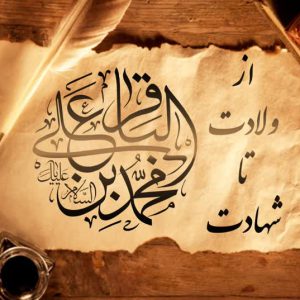 از
ولادت
تا
شهادت
محمد بن علی الباقر
علیه السلام